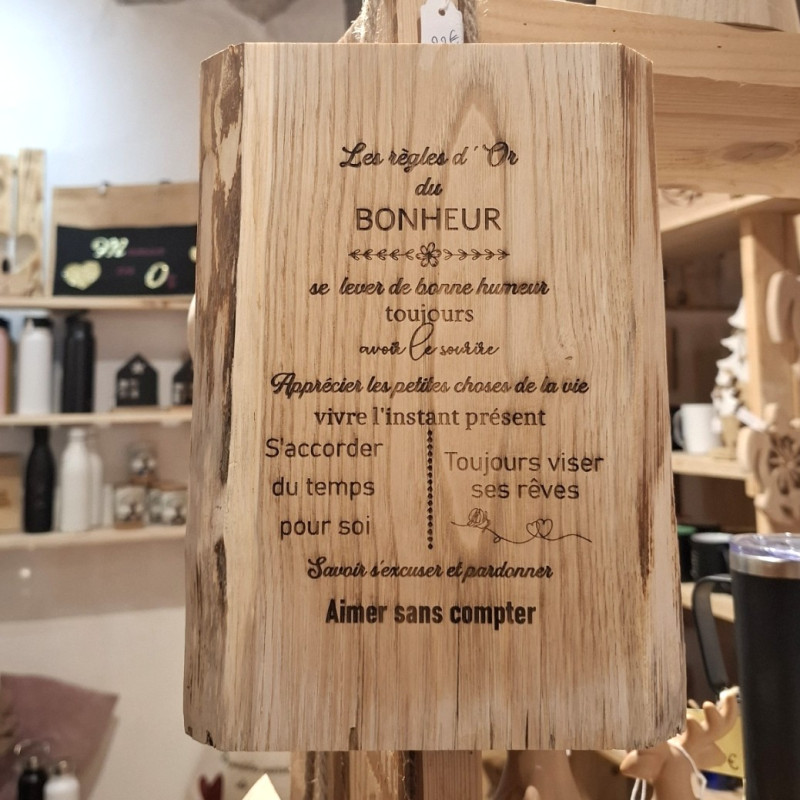 Les règles d'Or
du
BONHEUR
se lever de bonne humeur
toujours
avoir le sourire
Apprécier les petites choses de la vie
vivre l'instant présent
S'accorder
du temps
pour soi
Toujours viser
ses rêves
Savoir s'excuser et pardonner
Aimer sans compter